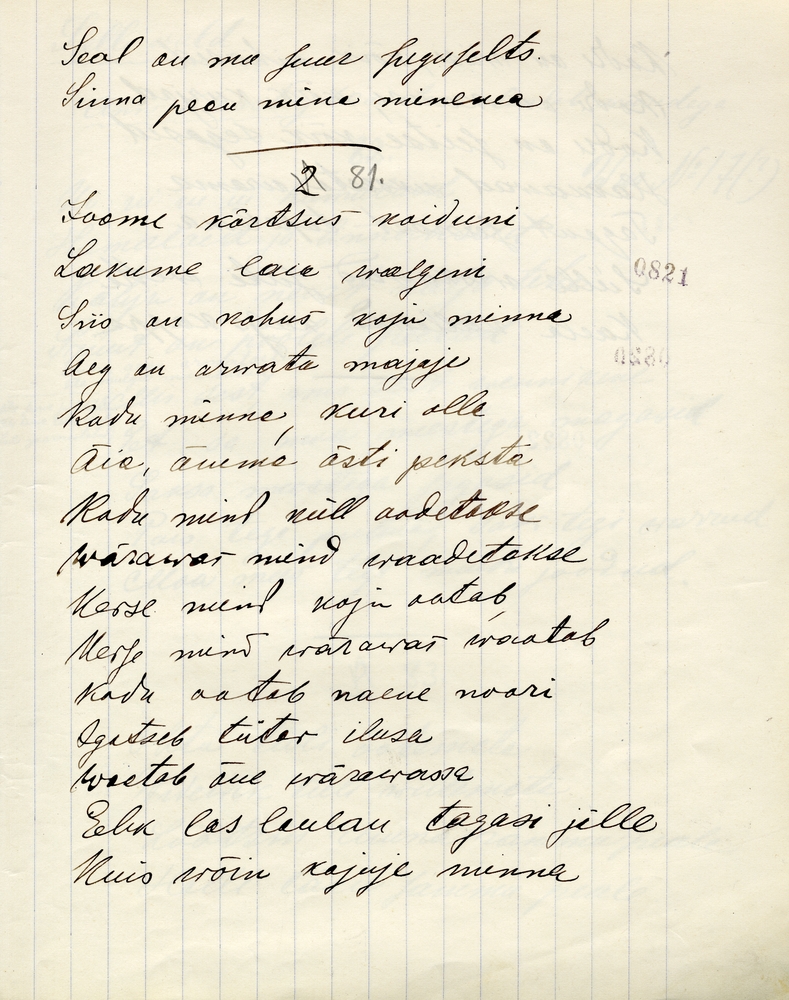 Seal on mu suur suguselts.
Sinna pean mina minema
2 81.
Joome kõrtsus koiduni
Lakume laia walgeni
Siis on kohus koju minna
Aeg on arwata majaje
Kodu minna, kuri olla
Äia, ämma ästi peksta
Kodu mind küll oodetakse
wärawas mind waadetakse
Kerse mind koju ootab,
Kerse mind wärawas waatab
Kodu ootab naene noori
Igatseb tütar ilusa
waatab õue wärawassa
Eebk las laulan tagasi jälle
Kuis wõin kojuje minna
0821